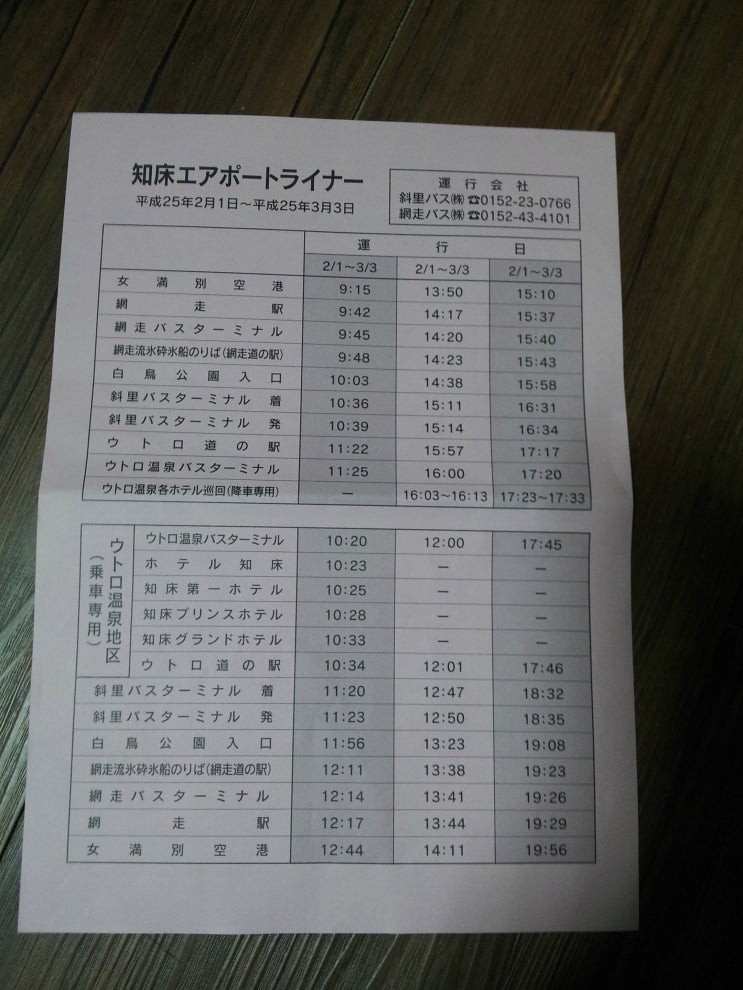 知床エアポートライナー
平成25年2月1日～平成25年3月3日
運行会社
斜里バス㈱☎0152-23-0766
網走バス㈱☎0152-43-4101
運行日
2/1～3/3 2/1～3/3 2/1～3/3
女満別空港 9:15 13:50 15:10
網走駅 9:42 14:17 15:37
網走バスターミナル 9:45 14:20 15:40
網走流氷砕氷船のりば(網走道の駅) 9:48 14:23 15:43
白鳥公園入口 10:03 14:38 15:58
斜里バスターミナル 着 10:36 15:11 16:31
斜里バスターミナル 発 10:39 15:14 16:34
ウトロ道の駅 11:22 15:57 17:17
ウトロ温泉バスターミナル 11:25 16:00 17:20
ウトロ温泉各ホテル巡回(降車専用) － 16:03～16:13 17:23～17:33
ウトロ温泉地区
(乗車専用)
ウトロ温泉バスターミナル 10:20 12:00 17:45
ホテル知床 10:23 － －
知床第一ホテル 10:25 － －
知床プリンスホテル 10:28 － －
知床グランドホテル 10:33 － －
ウトロ道の駅 10:34 12:01 17:46
斜里バスターミナル 着 11:20 12:47 18:32
斜里バスターミナル 発 11:23 12:50 18:35
白鳥公園入口 11:56 13:23 19:08
網走流氷砕氷船のりば(網走道の駅) 12:11 13:38 19:23
網走バスターミナル 12:14 13:41 19:26
網走駅 12:17 13:44 19:29
女満別空港 12:44 14:11 19:56